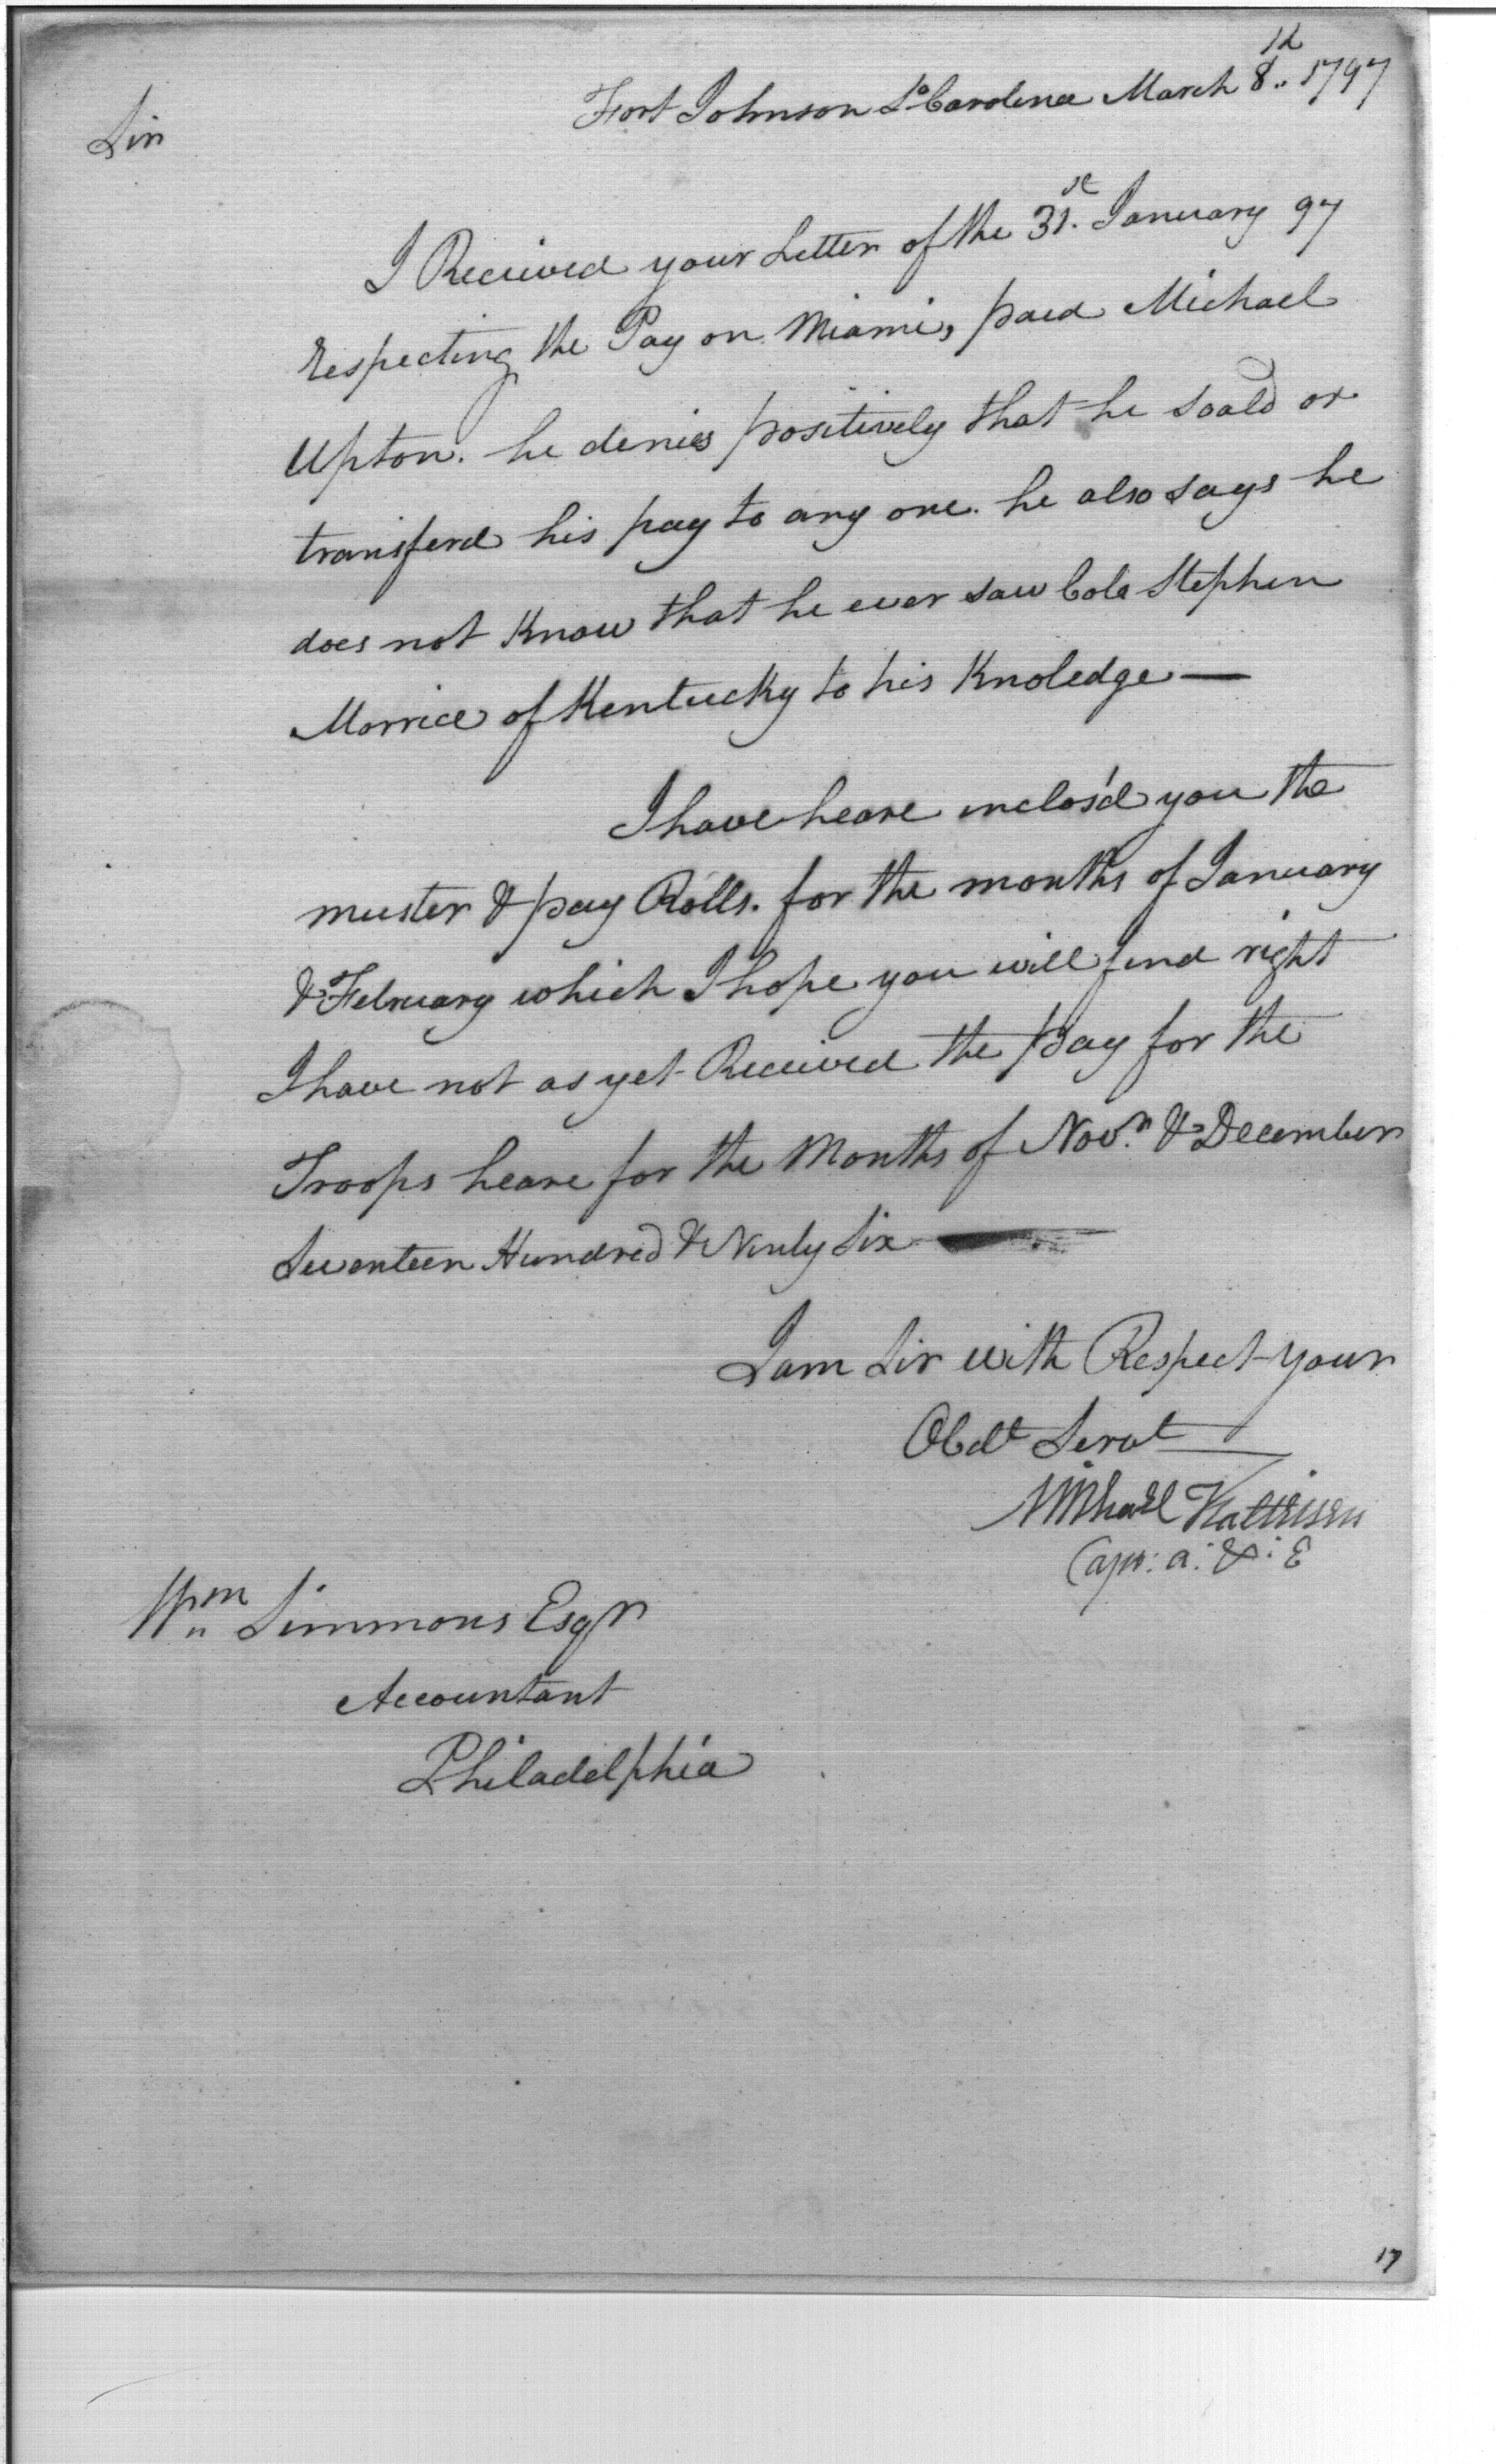 Fort Johnson So Carolina March 8th 1797
Sir
I Received your Letter of the 31st January 97
respecting the Pay on Miami, paid Michael
Upton. he denies positively that he soald or
transferd his pay to any one. he also says he
does not Know that he ever saw Colo Stephen
Morrice of Kentucky to his Knoledge —
I have heare inclos'd you the
muster & pay Rolls. for the months of January
& February which I hope you will find right
I have not as yet Received the pay for the
Troops heare for the Months of Novr. & December
Seventeen Hundred & Ninty Six —
I am Sir with Respect your
Obdt Servt
Michael Kalteisen
Capt: a: & E
Wm Simmons Esqr
Accountant
Philadelphia
17